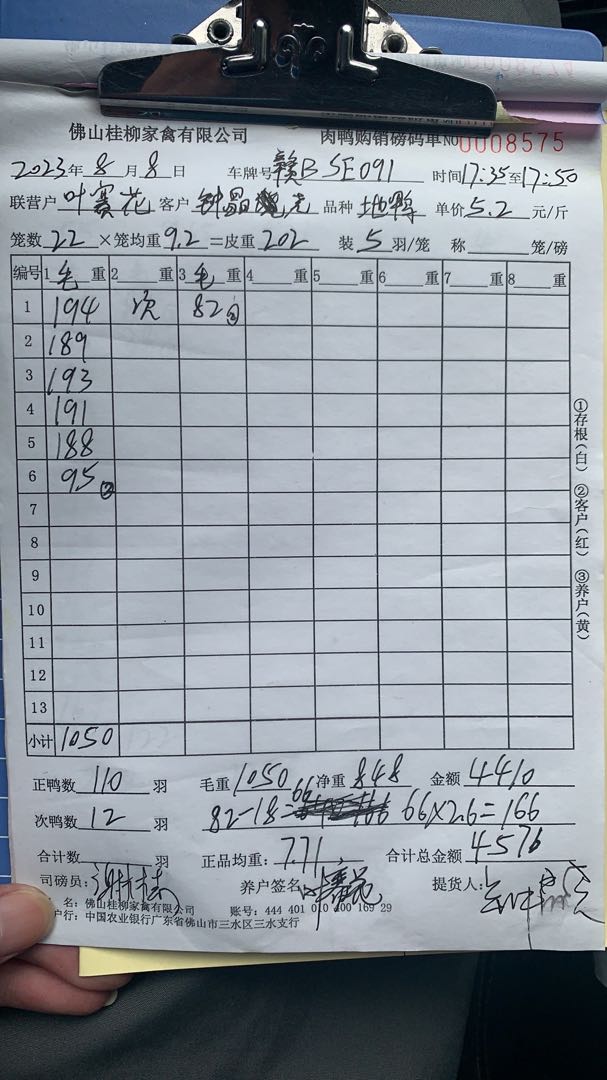 佛山桂柳家禽有限公司 肉鸭购销磅码单No 0008575
2023年 8 月 8 日 车牌号 赣B SE091 时间 17:35 至 17:50
联营户 叶赛花 客户 钟晶 品种 地鸭 单价 5.2 元/斤
笼数 22 ×笼均重 9.2 =皮重 202 装 5 羽/笼 称 笼/磅
编号 1 毛 重 2 重 3 毛 重 4 重 5 重 6 重 7 重 8 重
1 194 次 82②
2 189
3 193
4 191
5 188
6 95②
7
8
9
10
11
12
13
小计 1050
①存根(白) ②客户(红) ③养户(黄)
正鸭数 110 羽 毛重 1050 净重 848 金额 4410
次鸭数 12 羽 82-18=66 66×2.6=166
合计数 羽 正品均重: 7.71 合计总金额 4576
司磅员: 养户签名 叶赛花 提货人:
名: 佛山桂柳家禽有限公司 账号: 444 401 010 400 169 29
户行: 中国农业银行广东省佛山市三水区三水支行